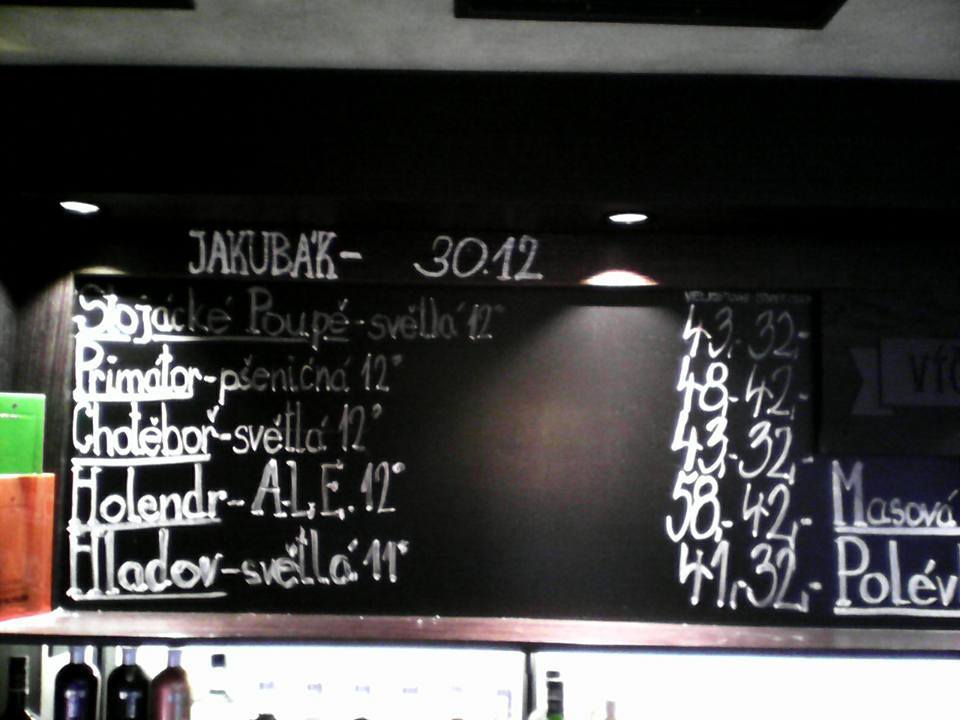 JAKUBÁK- 30.12
Stojácké Poupě-světlá 12° 43,- 32,-
Primátor-pšeničná 12° 48,- 42,-
Chotěboř-světlá 12° 43,- 32,-
Holendr- A.L.E. 12° 58,- 42,-
Hladov-světlá 11° 41,- 32,-
Masová
Polév